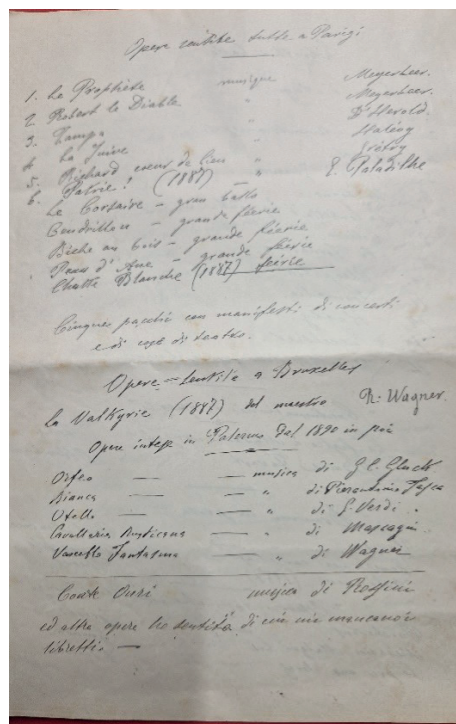 Opere sentite tutte a Parigi
1. Le Prophète musique Meyerbeer.
2. Robert le Diable " Meyerbeer.
3. Zampa " D'Herold.
4. La Juive " Halévy
5. Richard coeur de Lion " Grétry
6. Patrie! (1887) — " E. Paladilhe
Le Corsaire — gran ballo
Cendrillon — grande féerie
Biche au bois — grande féerie
Peau d'Ane — grande féerie
Chatte Blanche (1887) féerie
Cinque pacchi con manifesti di concerti
e di cose di teatro.
Opere sentite a Bruxelles
La Valkyrie (1887) del maestro R. Wagner.
Opere intese in Palermo dal 1890 in poi
Orfeo — — musica di G. C. Gluck
Bianca — — " di Pierantonio Tasca
Otello — — " di G. Verdi.
Cavalleria Rusticana — " di Mascagni.
Vascello Fantasma — " di Wagner
Comte Ourì musica di Rossini
ed altre opere ho sentito, di cui mi mancano i
libretti —